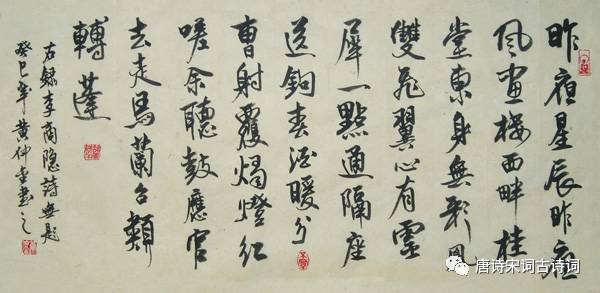 昨夜星辰昨夜
风畫樓西畔桂
堂東身無彩凤
雙飛翼心有靈
犀一點通隔座
送鉤春酒暖分
曹射覆燭燈紅
嗟余聽鼓應官
去走馬蘭台類
轉蓬
右錄李商隐詩無題
癸巳年黄仲書之
唐诗宋词古诗词